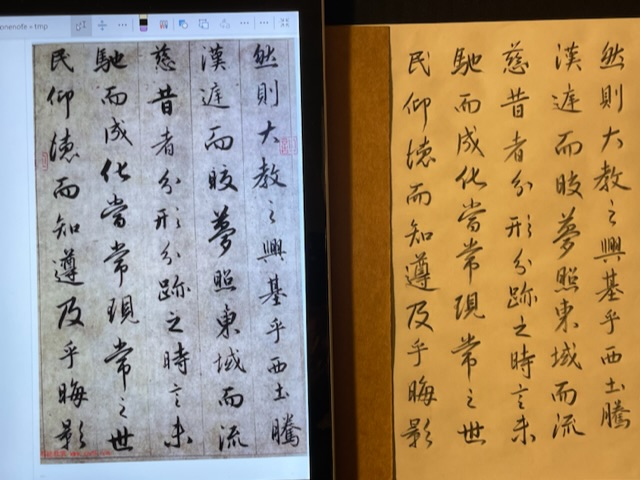 onenote » tmp
然則大教之興基乎西土騰
漢遑而皎夢照東域而流
慈昔者分形分跡之時言未
馳而成化當常現常之世
民仰德而知遵及乎晦影
然則大教之興基乎西土騰
漢遑而皎夢照東域而流
慈昔者分形分跡之時言未
馳而成化當常現常之世
民仰德而知遵及乎晦影